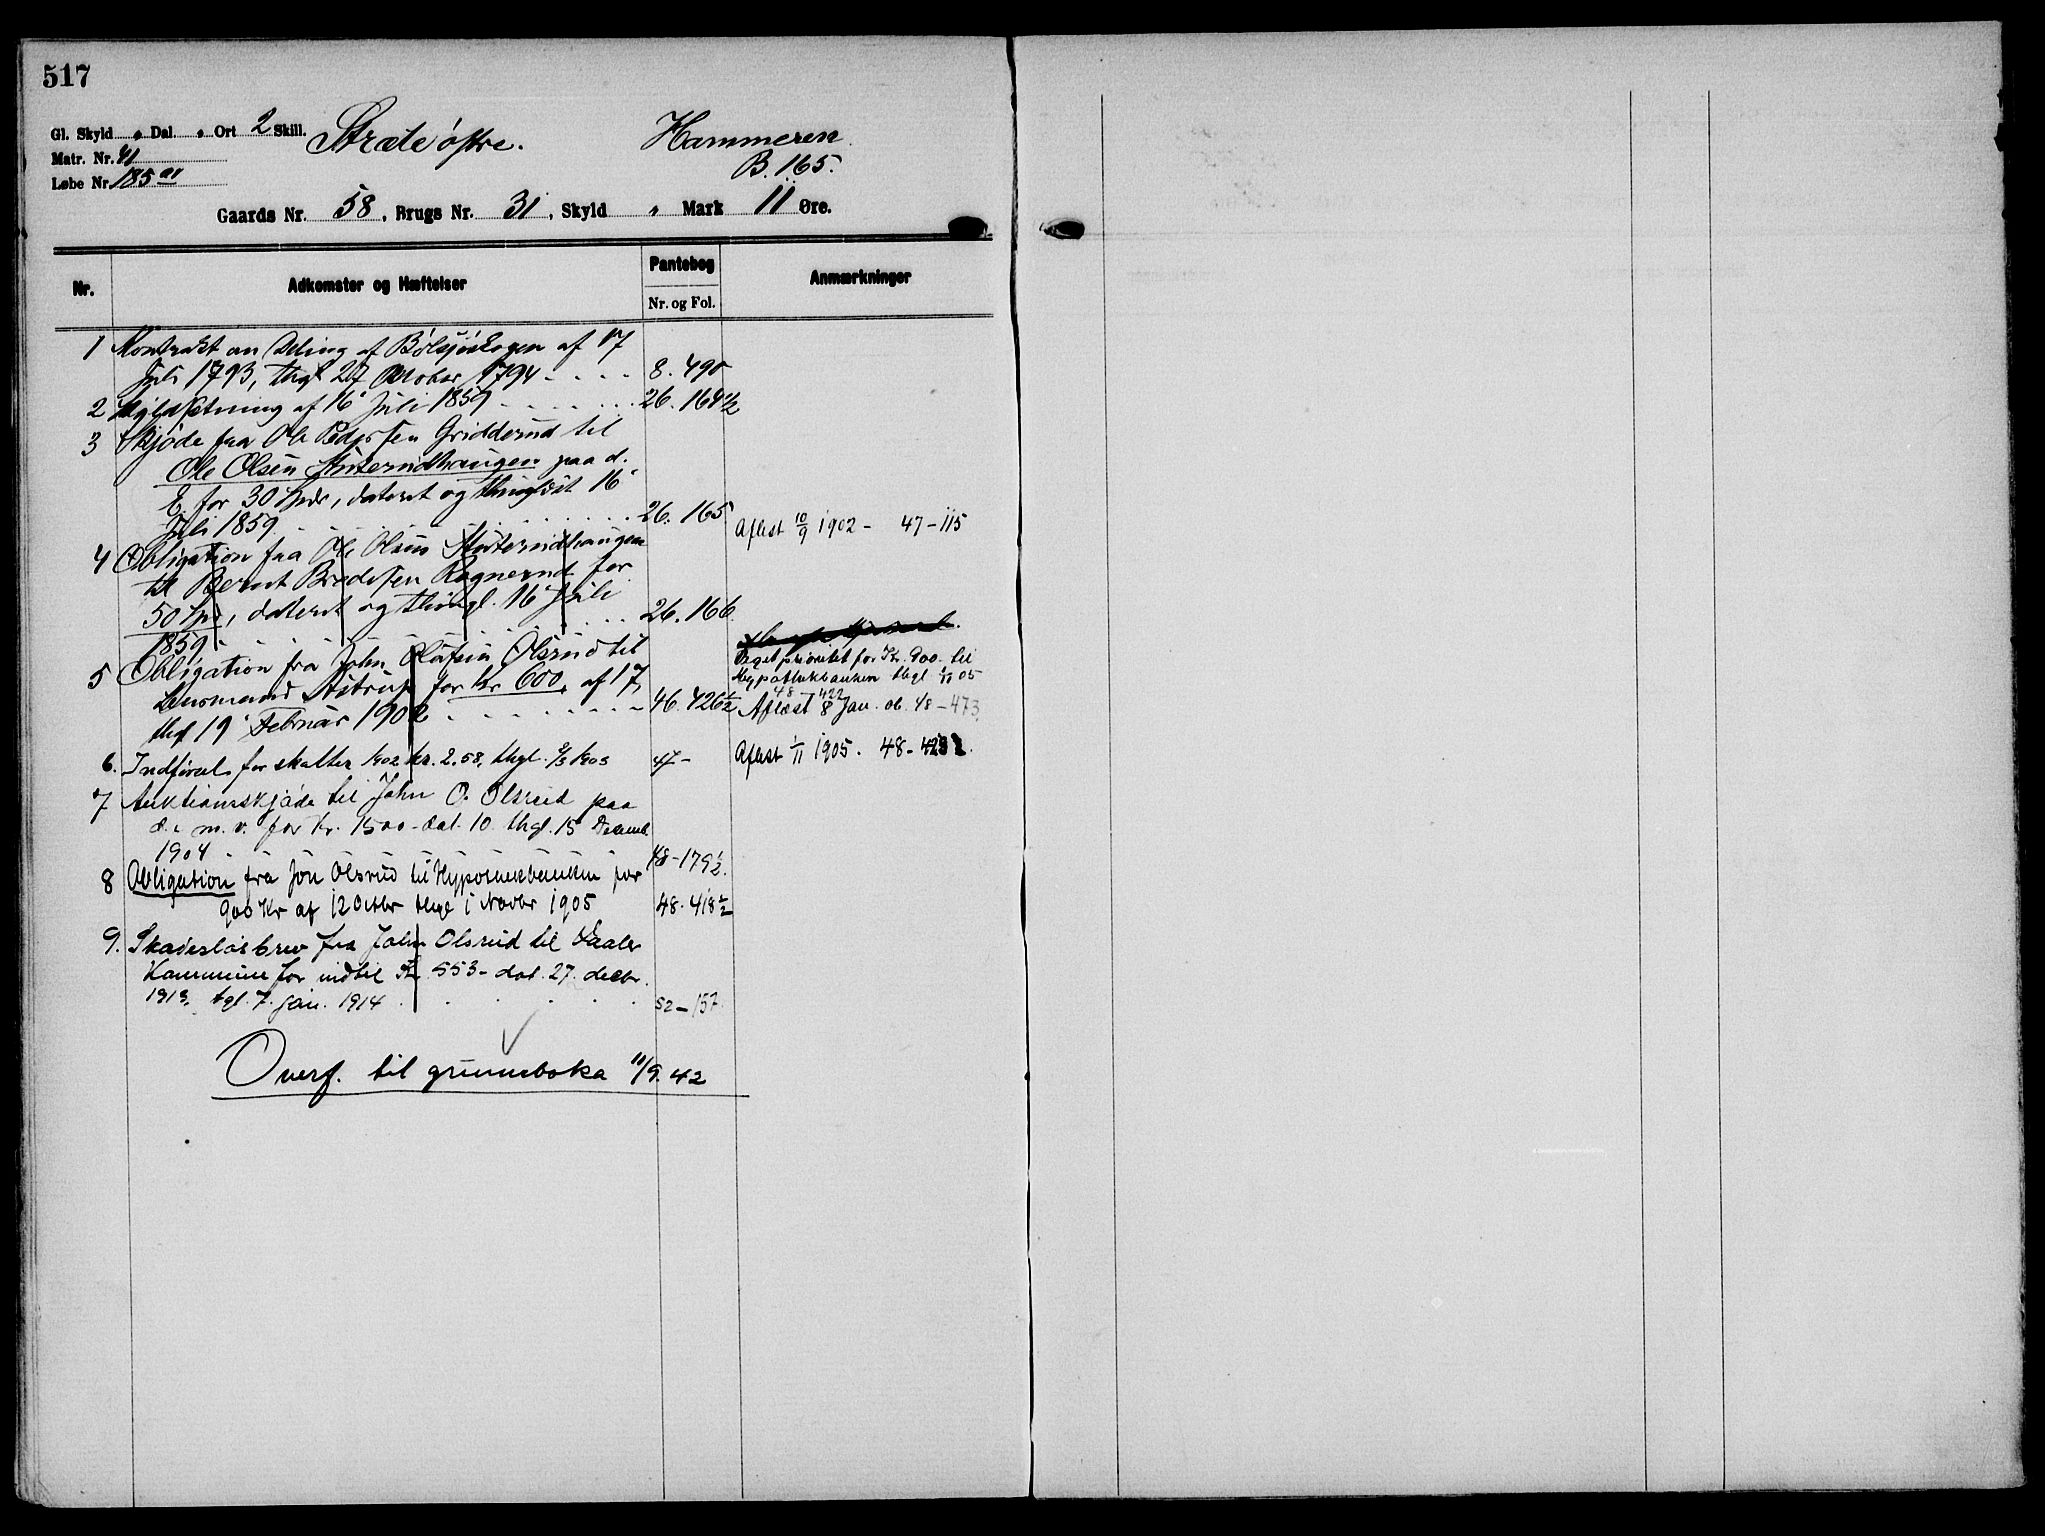 517
Gl. Skyld " Dal. " Ort 2 Skill. Stræte østre. Hammeren
Matr. Nr. 41 B. 165.
Løbe Nr. 185
Gaards Nr. 58, Brugs Nr. 31, Skyld " Mark 11 Øre.
Nr. Adkomster og Hæftelser Pantebog Anmærkninger
Nr. og Fol.
1 Kontrakt om Deling af Bølsjøskogen af 17
Juli 1793, thgl 27 Oktober 1794 8. 490
2 Skyldsetning af 16 Juli 1859 26. 164½
3 Skjøde fra Ole Pedersen Gridderud til
Ole Olsen paa d.
E. for 30 Spdr, dateret og thinglæst 16
Juli 1859 26. 165
4 Obligation fra Ole Olsen
til Bernt Bredesen Ragnerud for
50 Spd, dateret og thingl. 16 Juli
1859 26. 166 Aflæst 10/9 1902 - 47-115
5 Obligation fra John Olafsen Olsrud til
Lensmand Astrup for Kr 600, af 17,
thgl 19 Februar 1902 46. 426½
Veget prioritet for Kr. 900 til
Hypothekbanken thgl 1/11 05
48-422
Aflæst 8 Jan. 06. 48-473
6. Indførsel for skatter 1902 kr. 2.58, thgl. 1903 47- Aflæst 1/11 1905. 48-
7 Auktionsskjøde til John O. Olsrud paa
d. m. v. for Kr. 1500 - dat. 10. thgl. 15 Decemb.
1904 48-179½.
8 Obligation fra Jon Olsrud til Hypothekbanken for
900 Kr af 12 Octbr thgl 1 Novbr 1905 48. 418½
9. Skadesløsbrev fra John Olsrud til Vaaler
Kommune for indtil Kr 553- dat. 27. decbr.
1913, tgl. 7. jan. 1914 52-157.
Overf. til grunnboka 11/9. 42